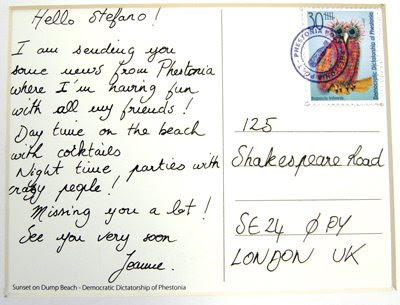 Hello Stefano!
I am sending you
some news from Phestonia
where I'm having fun
with all my friends!
Day time on the beach
with cocktails
Night time, parties with
crazy people!
Missing you a lot!
See you very soon
Joanne.
Sunset on Dump Beach - Democratic Dictatorship of Phestonia
30
Democratic Dictatorship of Phestonia
125
Shakespeare Road
SE24 0PY
LONDON UK